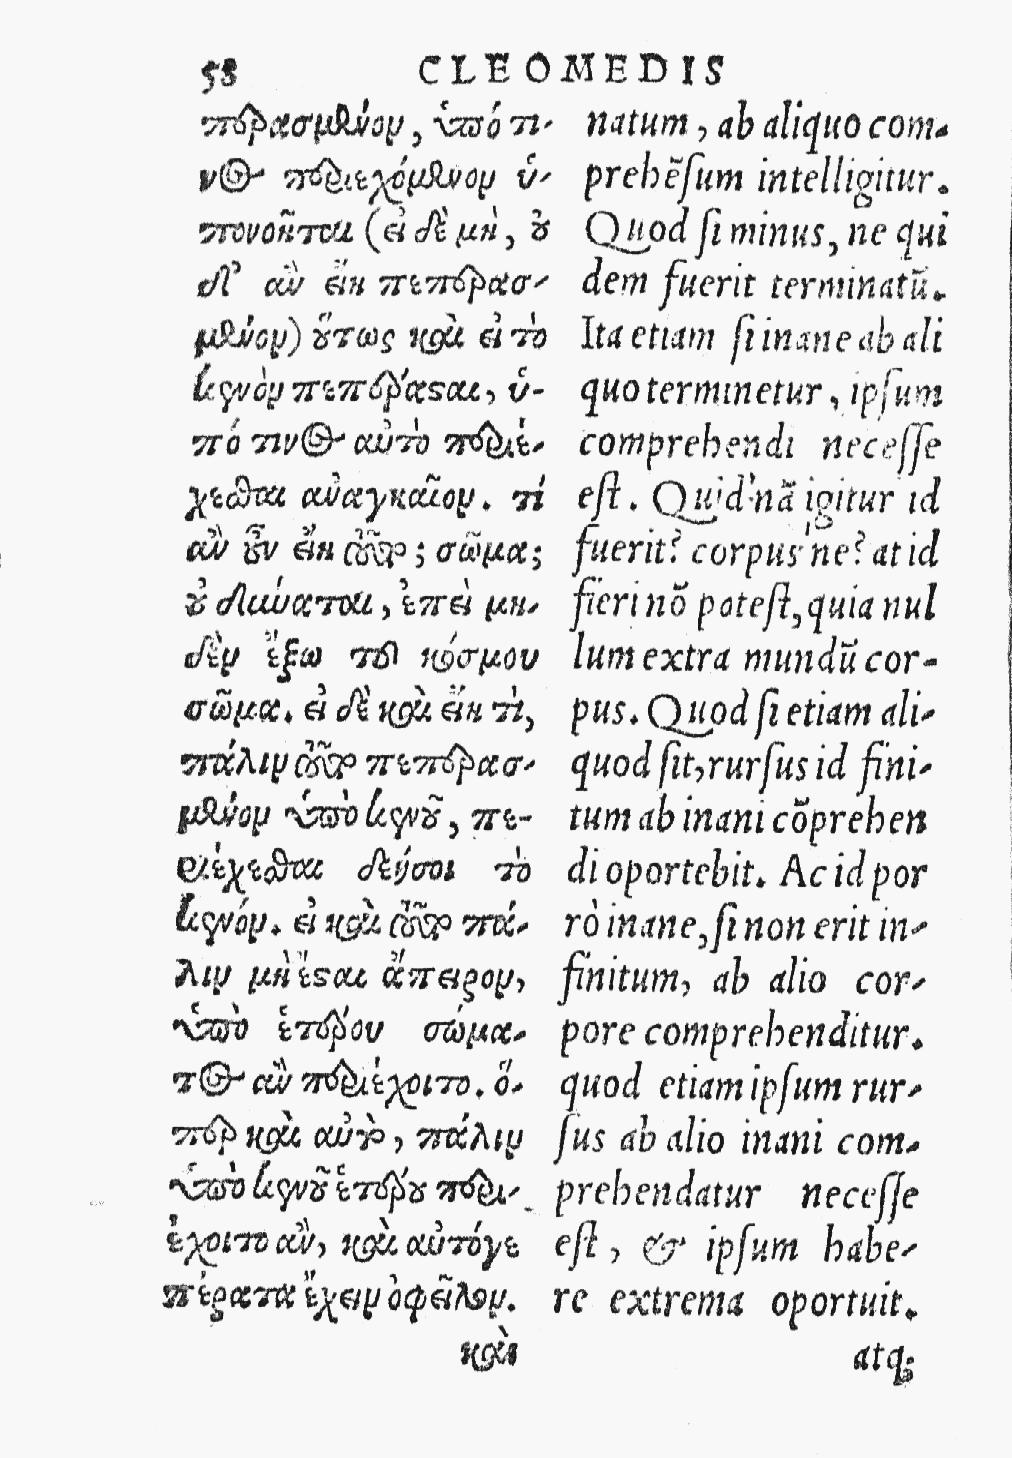 58 CLEOMEDIS
περασμένον, ὑπό τι-
νος περιεχόμενον ὑ-
πονοῆται (εἰ δὲ μὴ, οὐ
δ᾽ ἂν εἴη πεπερασ-
μένον) οὕτως καὶ εἰ τὸ
κενὸν πεπέρασαι, ὑ-
πό τινος αὐτὸ περιέ-
χεσθαι ἀναγκαῖον. τί
ἂν οὖν εἴη τοῦτο; σῶμα;
οὐ δύναται, ἐπεὶ μη-
δὲν ἔξω τοῦ κόσμου
σῶμα. εἰ δὲ καὶ εἴη τὶ,
πάλιν τοῦτο πεπερασ-
μένον ὑπὸ κενοῦ, πε-
ριέχεσθαι δεήσοι τὸ
κενόν. εἰ καὶ τοῦτο πά-
λιν μὴ ἔσαι ἄπειρον,
ὑπὸ ἑτέρου σώμα-
τος ἂν περιέχοιτο. ὅ-
περ καὶ αὐτὸ, πάλιν
ὑπὸ κενοῦ ἑτέρου περι-
έχοιτο ἂν, καὶ αὐτόγε
πέρατα ἔχειν ὀφεῖλον.
καὶ
natum, ab aliquo com-
prehẽsum intelligitur.
Quod si minus, ne qui
dem fuerit terminatũ.
Ita etiam si inane ab ali
quo terminetur, ipsum
comprehendi necesse
est. Quid'nã igitur id
fuerit? corpus'ne? at id
fieri nõ potest, quia nul
lum extra mundũ cor-
pus. Quod si etiam ali-
quod sit, rursus id fini-
tum ab inani cõprehen
di oportebit. Ac id por
rò inane, si non erit in-
finitum, ab alio cor-
pore comprehenditur.
quod etiam ipsum rur-
sus ab alio inani com-
prehendatur necesse
est, & ipsum habe-
re extrema oportuit.
atq;